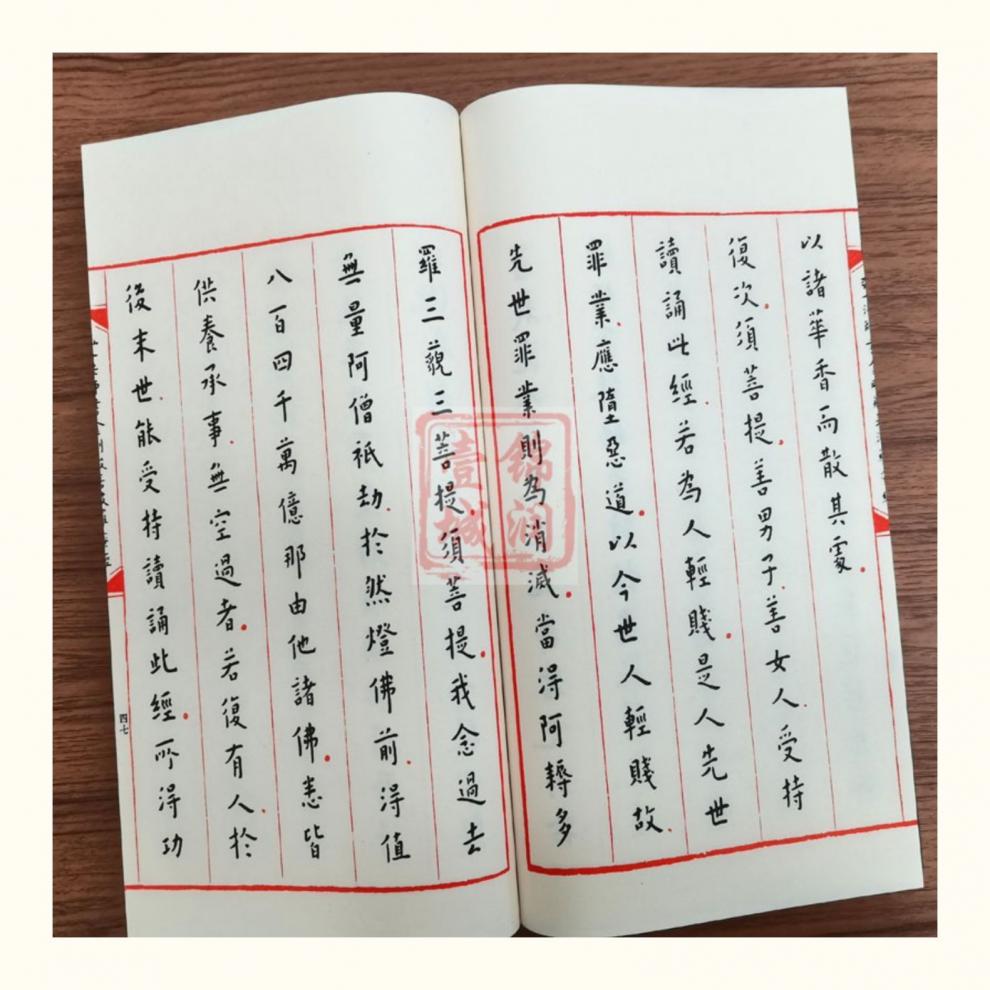 以諸華香而散其處
復次須菩提善男子善女人受持
讀誦此經若為人輕賤是人先世
罪業應墮惡道以今世人輕賤故
先世罪業則為消滅當得阿耨多
羅三藐三菩提須菩提我念過去
無量阿僧祇劫於然燈佛前得值
八百四千萬億那由他諸佛悉皆
供養承事無空過者若復有人於
後末世能受持讀誦此經所得功
四七
錦润
壹城